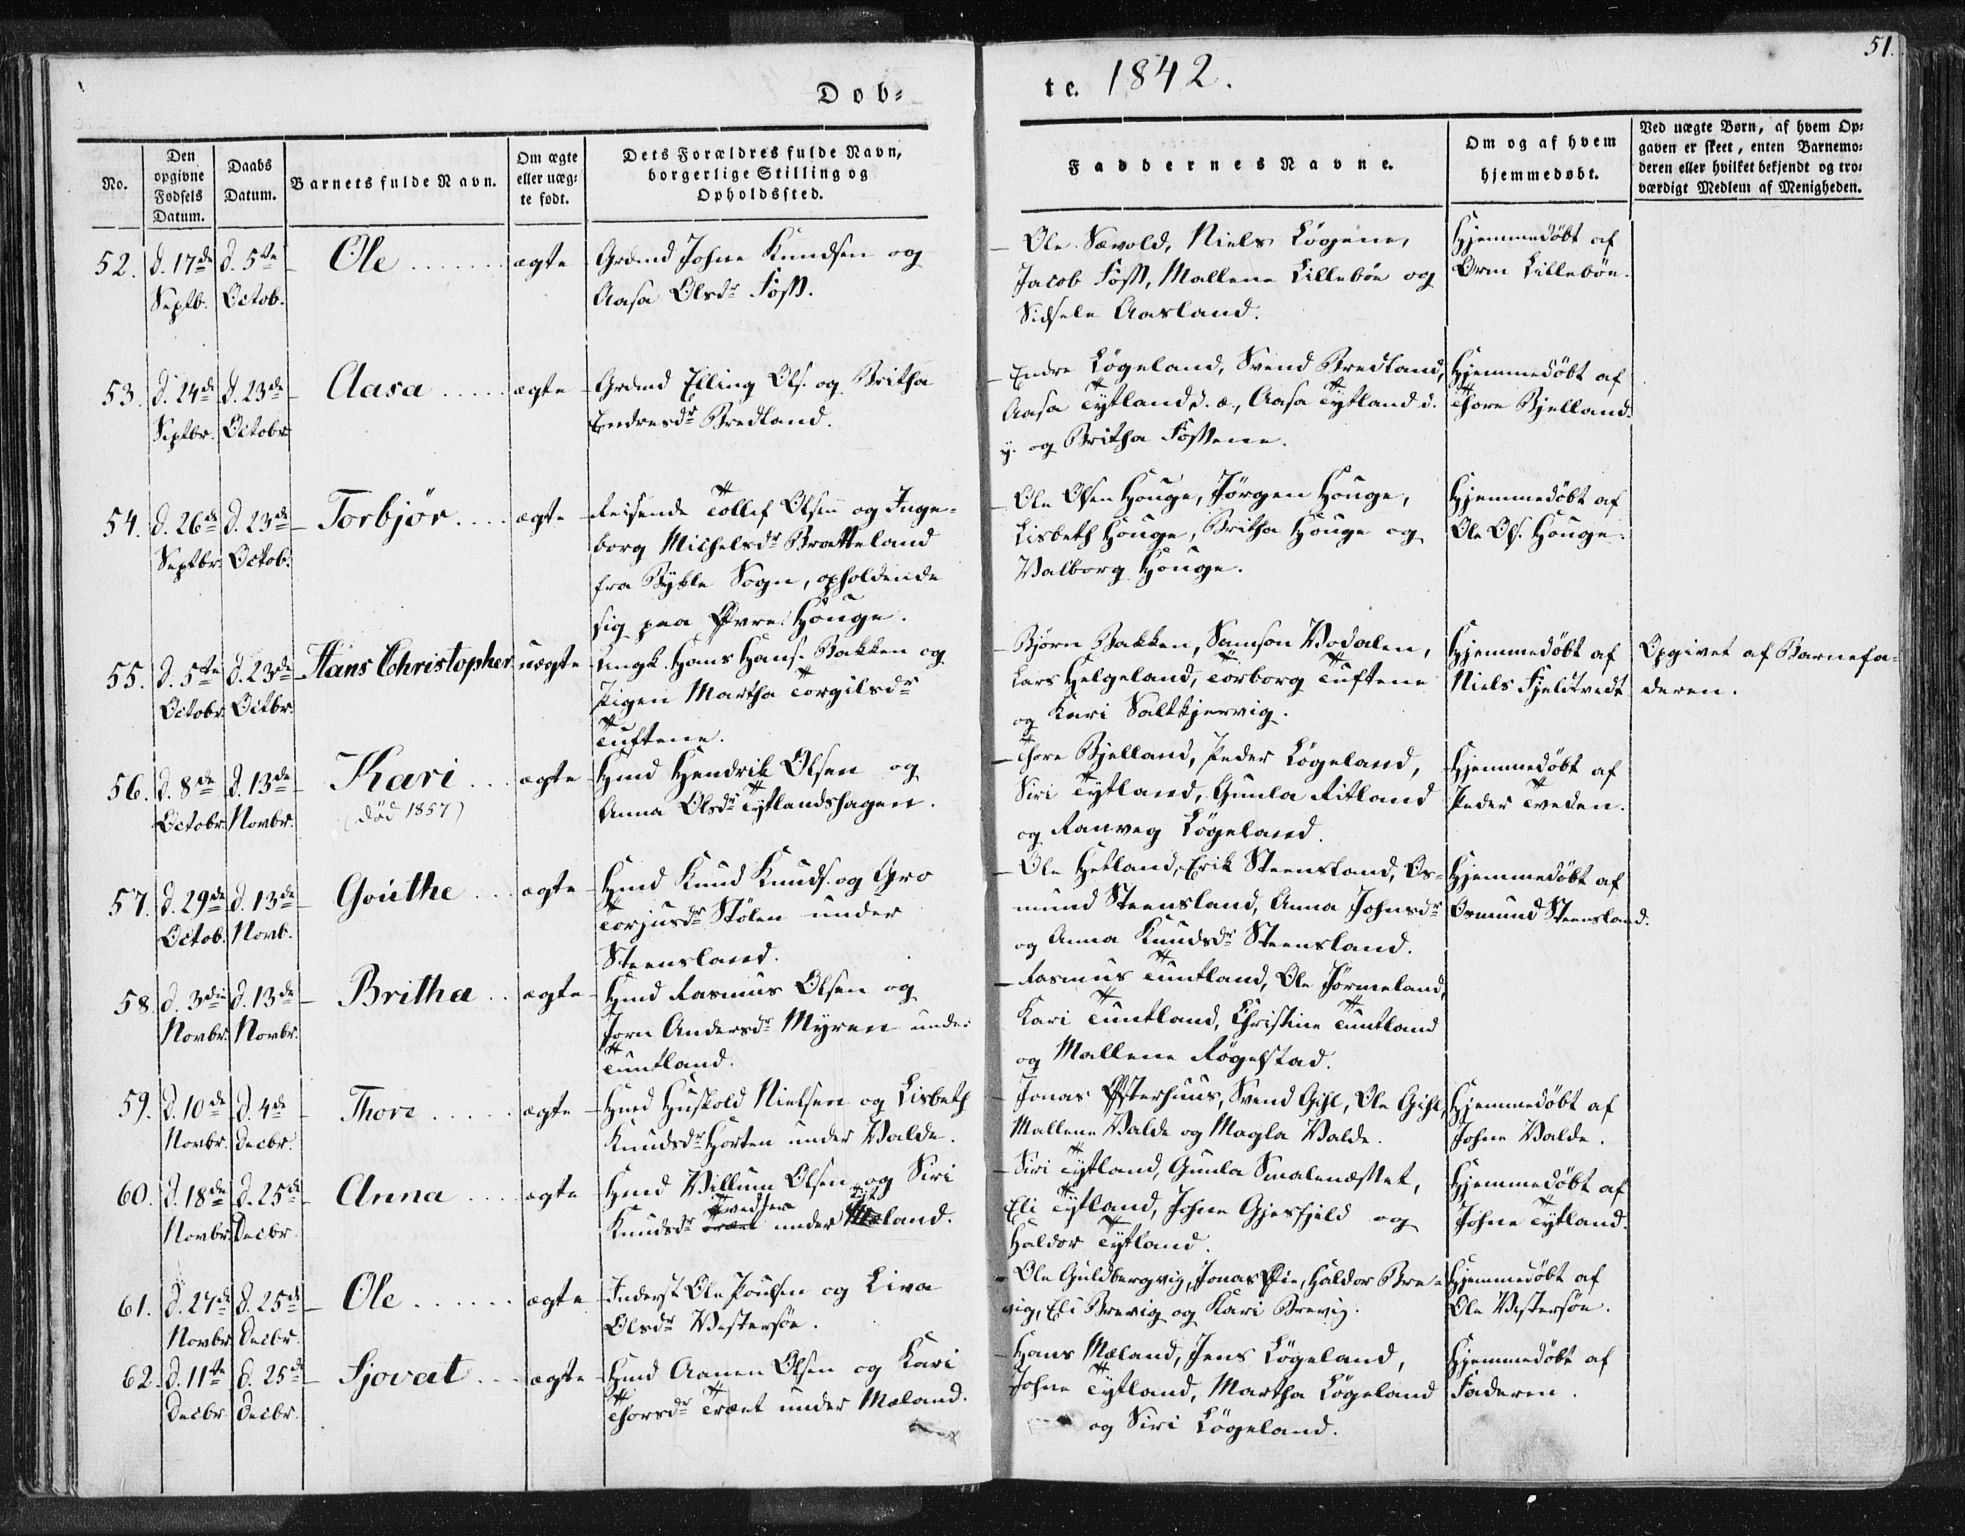 51.
Døb=
te. 1842.
No.
Den opgivne Fødsels Datum.
Daabs Datum.
Barnets fulde Navn.
Om ægte eller uæg= te født.
Dets Forældres fulde Navn, borgerlige Stilling og Opholdssted.
Faddernes Navne.
Om og af hvem hjemmedøbt.
Ved uægte Børn, af hvem Op= gaven er skeet, enten Barnemo= deren eller hvilket bekjendt og tro= værdigt Medlem af Menigheden.
52. d. 17de Septb. d. 5te Octob. Ole ægte
Grdmd Johne Knudsen og
Aasa Olsdr Foss.
Ole Sævold, Niels Løgene,
Jacob Foss, Mallene Lillebøe og
Sidsele Aasland.
Hjemmedøbt af
Orm Lillebøe.
53. d. 24de Septbr. d. 23de Octobr. Aasa ægte
Grdmd Elling Ols. og Britha
Endresdr Bredland.
Endre Løgeland, Svend Bredland,
Aasa Tytland d. æ., Aasa Tytland d.
y. og Britha Fossene.
Hjemmedøbt af
Thore Bjelland.
54. d. 26de Septbr. d. 23de Octob. Torbjør ægte
Reisende Tollef Olsen og Inge=
borg Michelsdr Bratteland
fra Bykle Sogn, opholdende
sig paa Øvre Houge.
Ole Olsen Houge, Jörgen Houge,
Lisbeth Houge, Britha Houge og
Valborg Houge.
Hjemmedøbt af
Ole Ols. Houge.
55. d. 5te Octobr. d. 23de Octbr. Hans Christopher uægte
Ungk. Hans Hans. Bakken og
Pigen Martha Torgilsdr
Tuftene.
Bjørn Bakken, Samson Vodalen,
Lars Helgeland, Torborg Tuftene
og Kari Saltkjervig.
Hjemmedøbt af
Niels Fjeldtvedt
Opgivet af Barnefa=
deren.
56. d. 8de Octobr. d. 13de Novbr. Kari ægte
(død 1857)
Hmd Hendrik Olsen og
Anna Olsdr Tytlandshagen.
Thore Bjelland, Peder Løgeland,
Siri Tytland, Gunla Ritland
og Ranveg Løgeland.
Hjemmedøbt af
Peder Tveden.
57. d. 29de Octob. d. 13de Novb. Gouthe ægte
Hmd Knud Knuds. og Gro
Torjusdr Stølen under
Steensland.
Ole Hetland, Erik Steensland, Os=
mund Steensland, Anna Johnsdr
og Anna Knudsdr Steensland.
Hjemmedøbt af
Osmund Steensland.
58. d. 3die Novbr. d. 13de Novbr. Britha ægte
Hmd Rasmus Olsen og
Jorn Andersdr Myren under
Tuntland.
Rasmus Tuntland, Ole Jørmeland,
Kari Tuntland, Christine Tuntland
og Mallene Røgelstad.
59. d. 10de Novbr. d. 4de Decbr. Thore ægte
Hmd Huskold Nielsen og Lisbeth
Knudsdr Horten under Valde.
Jonas Østerhuus, Svend Gihl, Ole Gihl,
Mallene Valde og Magla Valde.
Hjemmedøbt af
Johne Valde.
60. d. 18de Novbr. d. 25de Decbr. Anna ægte
Hmd Villum Olsen og Siri
Knudsdr under land.
Siri Tytland, Gunla Smalenæsset,
Eli Tytland, Johne Gjesfjeld og
Haldor Tytland.
Hjemmedøbt af
Johne Tytland.
61. d. 27de Novbr. d. 25de Decbr. Ole ægte
Inderst Ole Poulsen og Liva
Olsdr Vestersøe.
Ole Guldbergvig, Jonas Øie, Haldor Bre=
vig, Eli Brevig og Kari Brevig.
Hjemmedøbt af
Ole Vestersøe.
62. d. 11te Decbr. d. 25de Decbr. Sjovat ægte
Hmd Aanen Olsen og Kari
Thorsdr Træet under Mæland.
Hans Mæland, Jens Løgeland,
Johne Tytland, Martha Løgeland
og Siri Løgeland.
Hjemmedøbt af
Faderen.